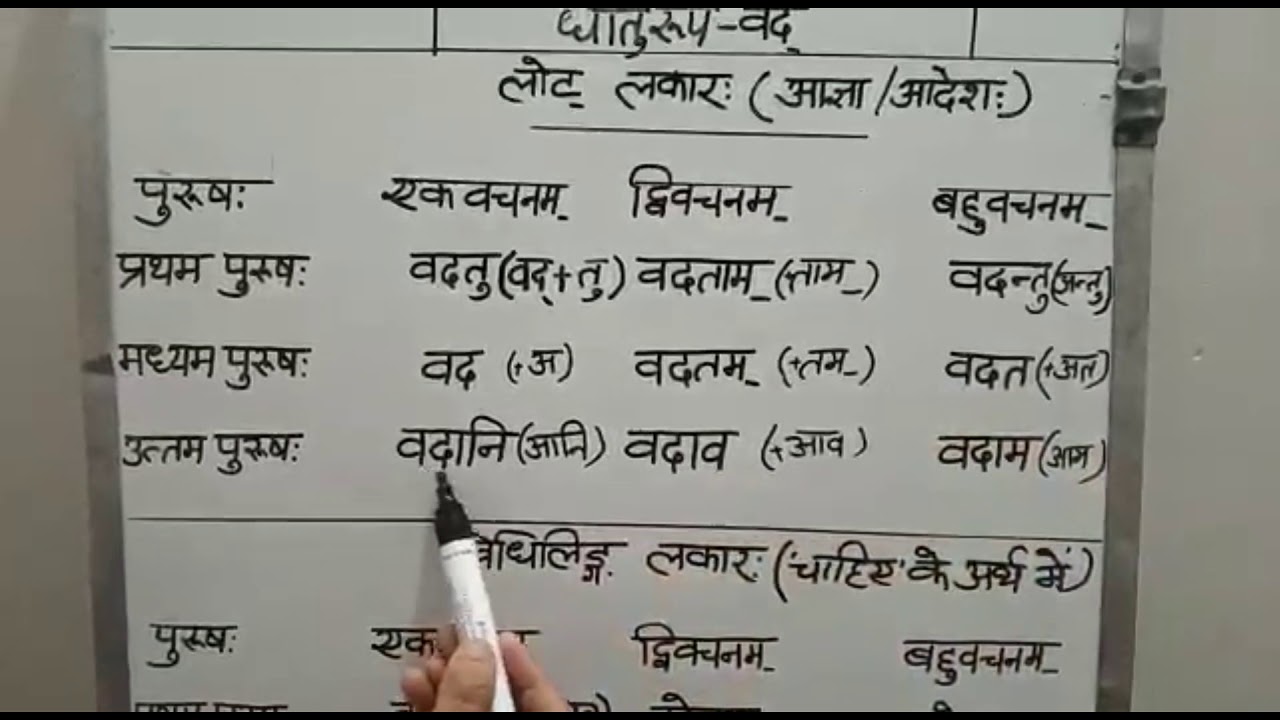 धातुरूप-वद्
लोट् लकारः (आज्ञा/आदेशः)
पुरूषः एकवचनम् द्विवचनम् बहुवचनम्
प्रथम पुरूषः वदतु (वद्+तु) वदताम् (+ताम्) वदन्तु (अन्तु)
मध्यम पुरूषः वद (+अ) वदतम् (+तम्) वदत (+अत)
उत्तम पुरूषः वदानि (आनि) वदाव (+आव) वदाम (आम)
लकारः ('चाहिए' के अर्थ में)
पुरूषः द्विवचनम् बहुवचनम्